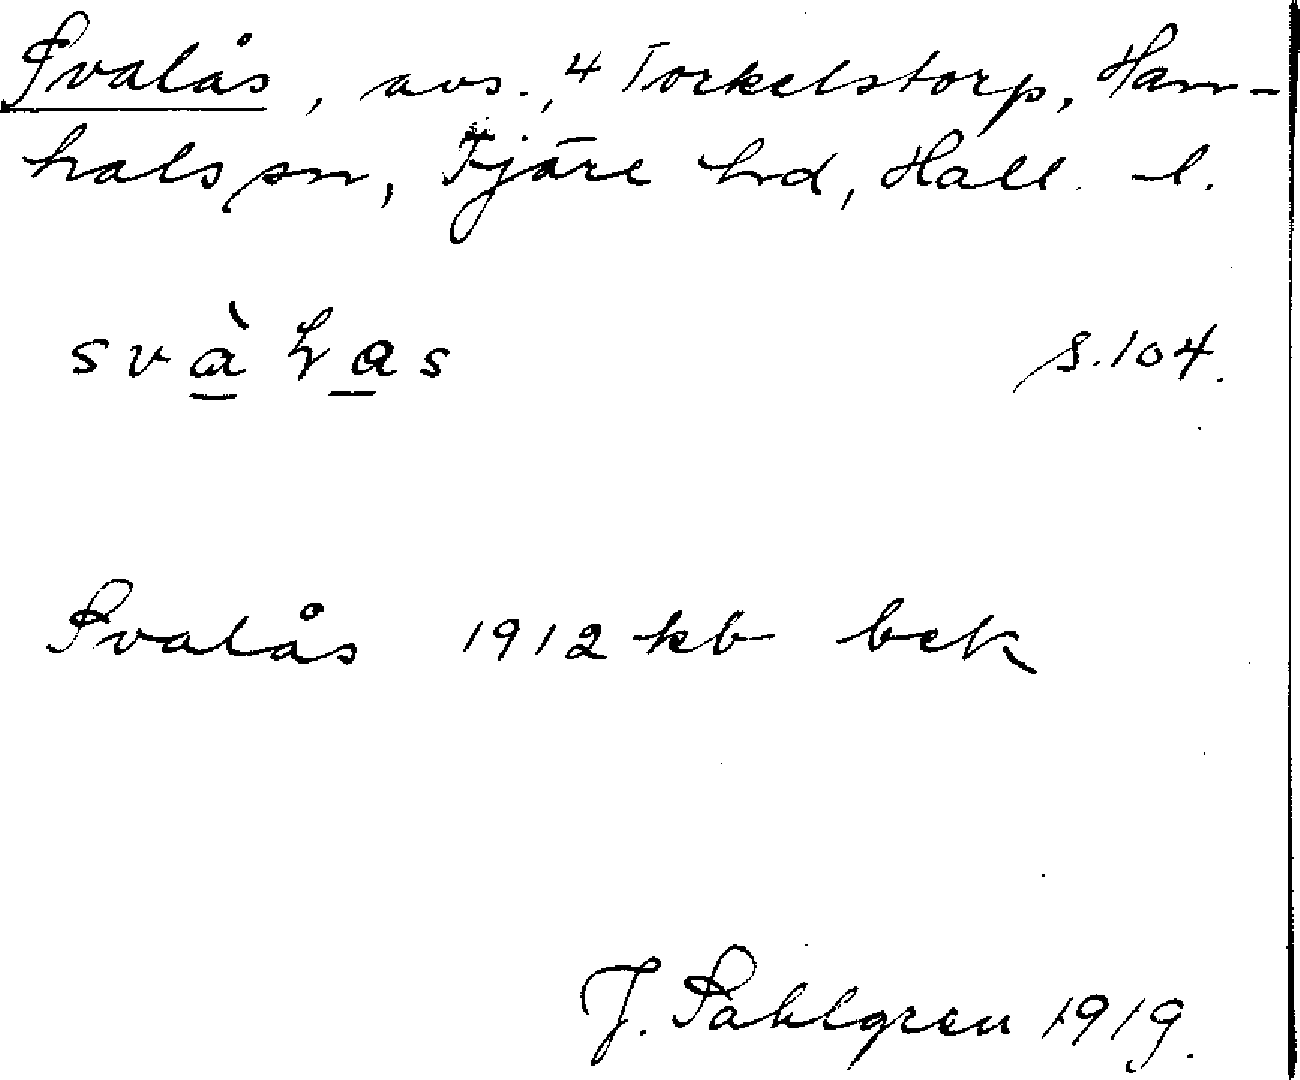 Svalås, avs., 4 Torkelstorp, Ham-
hals sn, Fjäre hd, Hall. l.
svàḷas s. 104.
Svalås 1912 kb bek
J. Sahlgren 1919.